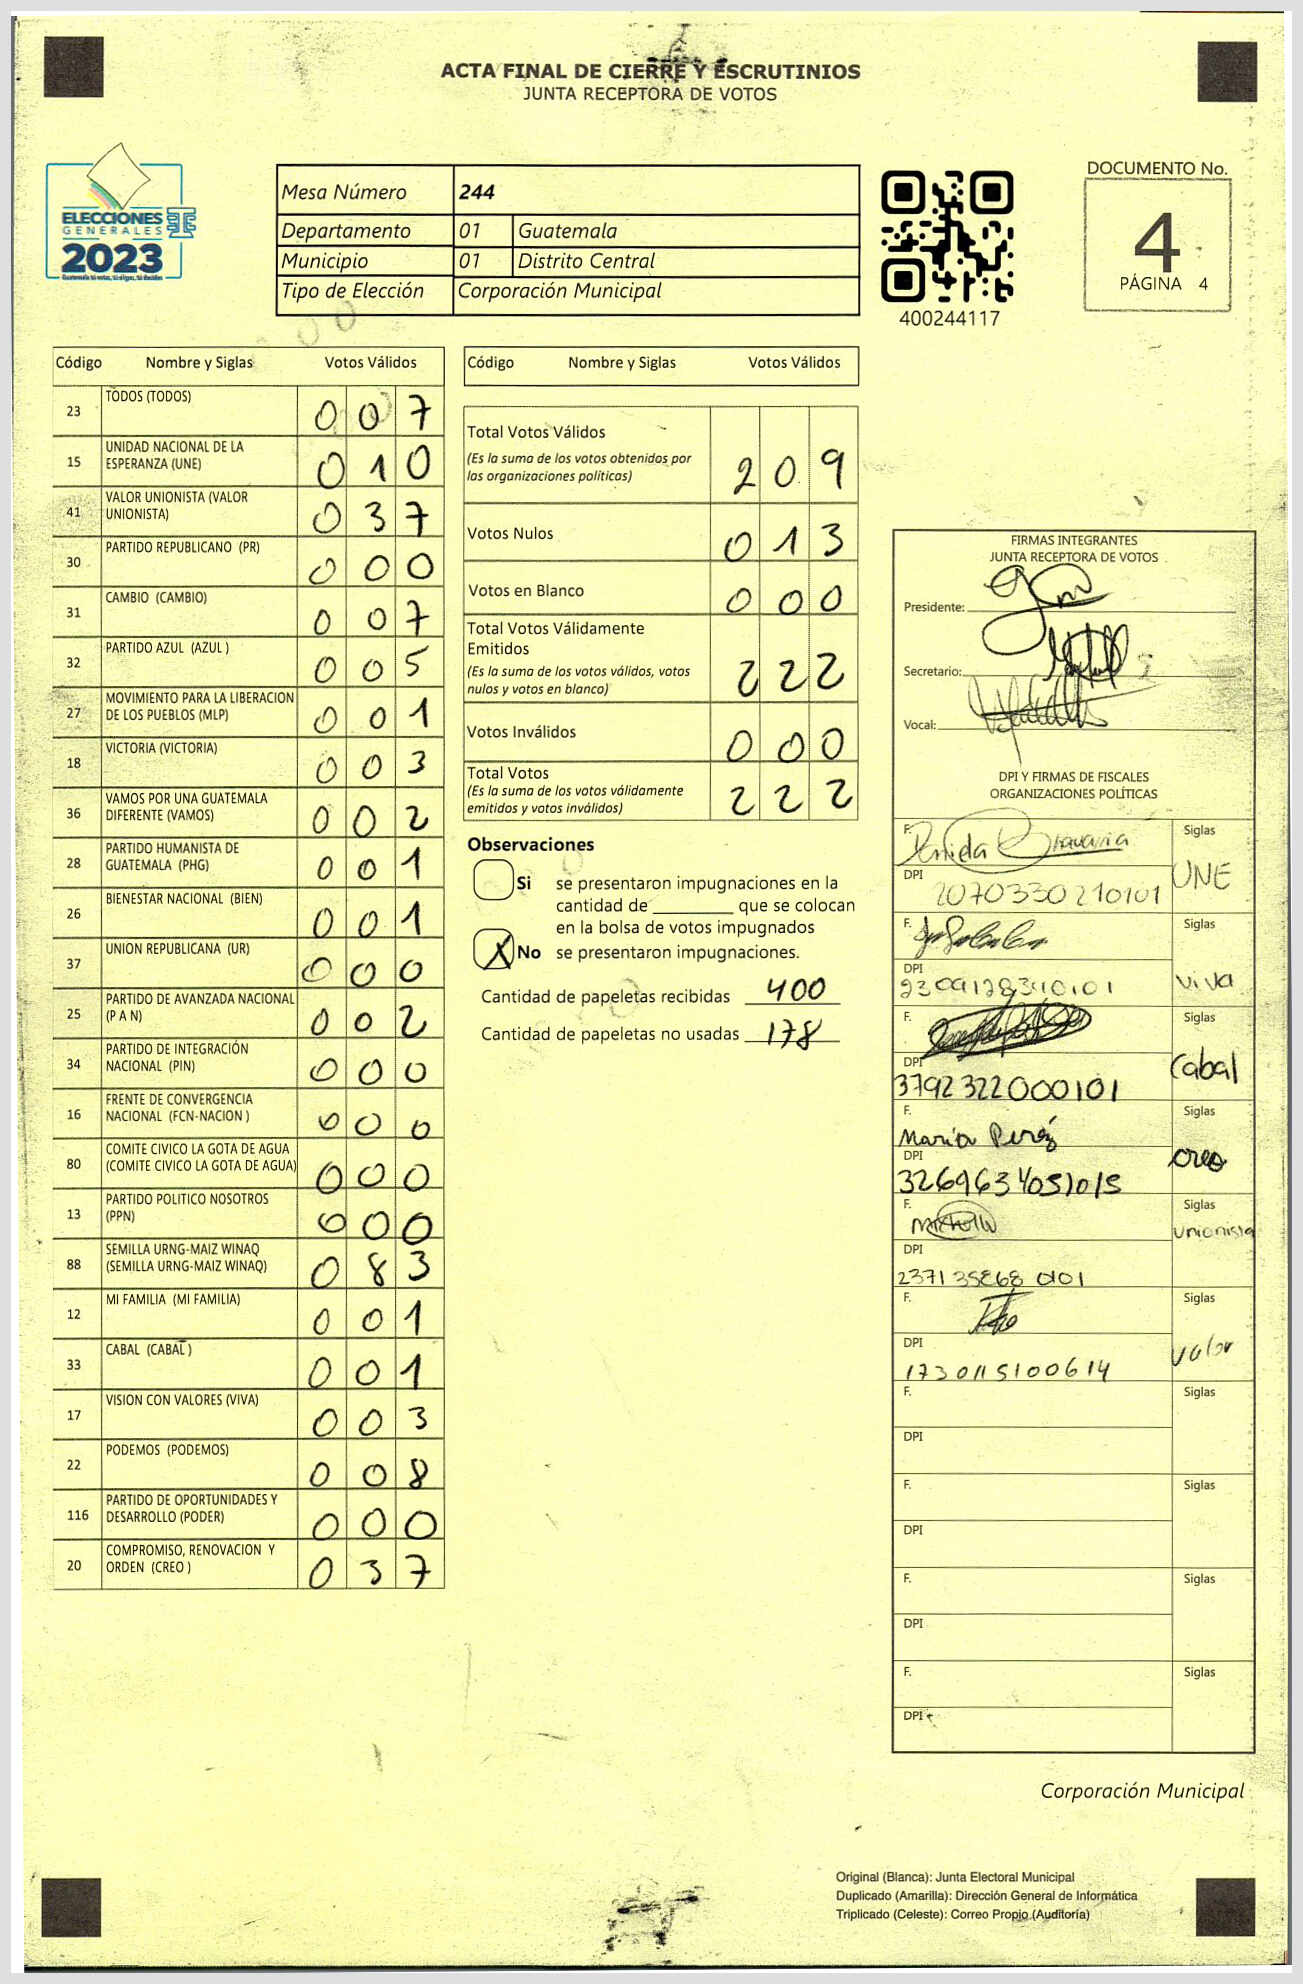 ACTA FINAL DE CIERRE Y ESCRUTINIOS
JUNTA RECEPTORA DE VOTOS
ELECCIONES
GENERALES
2023
Mesa Número 244
Departamento 01 Guatemala
Municipio 01 Distrito Central
Tipo de Elección Corporación Municipal
400244117
DOCUMENTO No.
4
PÁGINA 4
Código Nombre y Siglas Votos Válidos
23 TODOS (TODOS) 0 0 7
15 UNIDAD NACIONAL DE LA
ESPERANZA (UNE) 0 1 0
41 VALOR UNIONISTA (VALOR
UNIONISTA) 0 3 7
30 PARTIDO REPUBLICANO (PR) 0 0 0
31 CAMBIO (CAMBIO) 0 0 7
32 PARTIDO AZUL (AZUL ) 0 0 5
27 MOVIMIENTO PARA LA LIBERACION
DE LOS PUEBLOS (MLP) 0 0 1
18 VICTORIA (VICTORIA) 0 0 3
36 VAMOS POR UNA GUATEMALA
DIFERENTE (VAMOS) 0 0 2
28 PARTIDO HUMANISTA DE
GUATEMALA (PHG) 0 0 1
26 BIENESTAR NACIONAL (BIEN) 0 0 1
37 UNION REPUBLICANA (UR) 0 0 0
25 PARTIDO DE AVANZADA NACIONAL
(P A N) 0 0 2
34 PARTIDO DE INTEGRACIÓN
NACIONAL (PIN) 0 0 0
16 FRENTE DE CONVERGENCIA
NACIONAL (FCN-NACION ) 0 0 0
80 COMITE CIVICO LA GOTA DE AGUA
(COMITE CIVICO LA GOTA DE AGUA) 0 0 0
13 PARTIDO POLITICO NOSOTROS
(PPN) 0 0 0
88 SEMILLA URNG-MAIZ WINAQ
(SEMILLA URNG-MAIZ WINAQ) 0 8 3
12 MI FAMILIA (MI FAMILIA) 0 0 1
33 CABAL (CABAL ) 0 0 1
17 VISION CON VALORES (VIVA) 0 0 3
22 PODEMOS (PODEMOS) 0 0 8
116 PARTIDO DE OPORTUNIDADES Y
DESARROLLO (PODER) 0 0 0
20 COMPROMISO, RENOVACION Y
ORDEN (CREO ) 0 3 7
Código Nombre y Siglas Votos Válidos
Total Votos Válidos
(Es la suma de los votos obtenidos por
las organizaciones políticas) 2 0 9
Votos Nulos 0 1 3
Votos en Blanco 0 0 0
Total Votos Válidamente
Emitidos
(Es la suma de los votos válidos, votos
nulos y votos en blanco) 2 2 2
Votos Inválidos 0 0 0
Total Votos
(Es la suma de los votos válidamente
emitidos y votos inválidos) 2 2 2
Observaciones
Si se presentaron impugnaciones en la
cantidad de ________ que se colocan
en la bolsa de votos impugnados
X No se presentaron impugnaciones.
Cantidad de papeletas recibidas 400
Cantidad de papeletas no usadas 178
FIRMAS INTEGRANTES
JUNTA RECEPTORA DE VOTOS
Presidente:
Secretario:
Vocal:
DPI Y FIRMAS DE FISCALES
ORGANIZACIONES POLÍTICAS
F. Siglas
UNE
DPI
2070330210101
F. Siglas
viva
DPI
F. Siglas
Cabal
DPI
3792322000101
F. María Peréz Siglas
creo
DPI
3269634051015
F. Siglas
unionista
DPI
237135868 0101
F. Siglas
valor
DPI
1730115100614
F. Siglas
DPI
F. Siglas
DPI
F. Siglas
DPI
F. Siglas
DPI
Corporación Municipal
Original (Blanca): Junta Electoral Municipal
Duplicado (Amarilla): Dirección General de Informática
Triplicado (Celeste): Correo Propio (Auditoría)